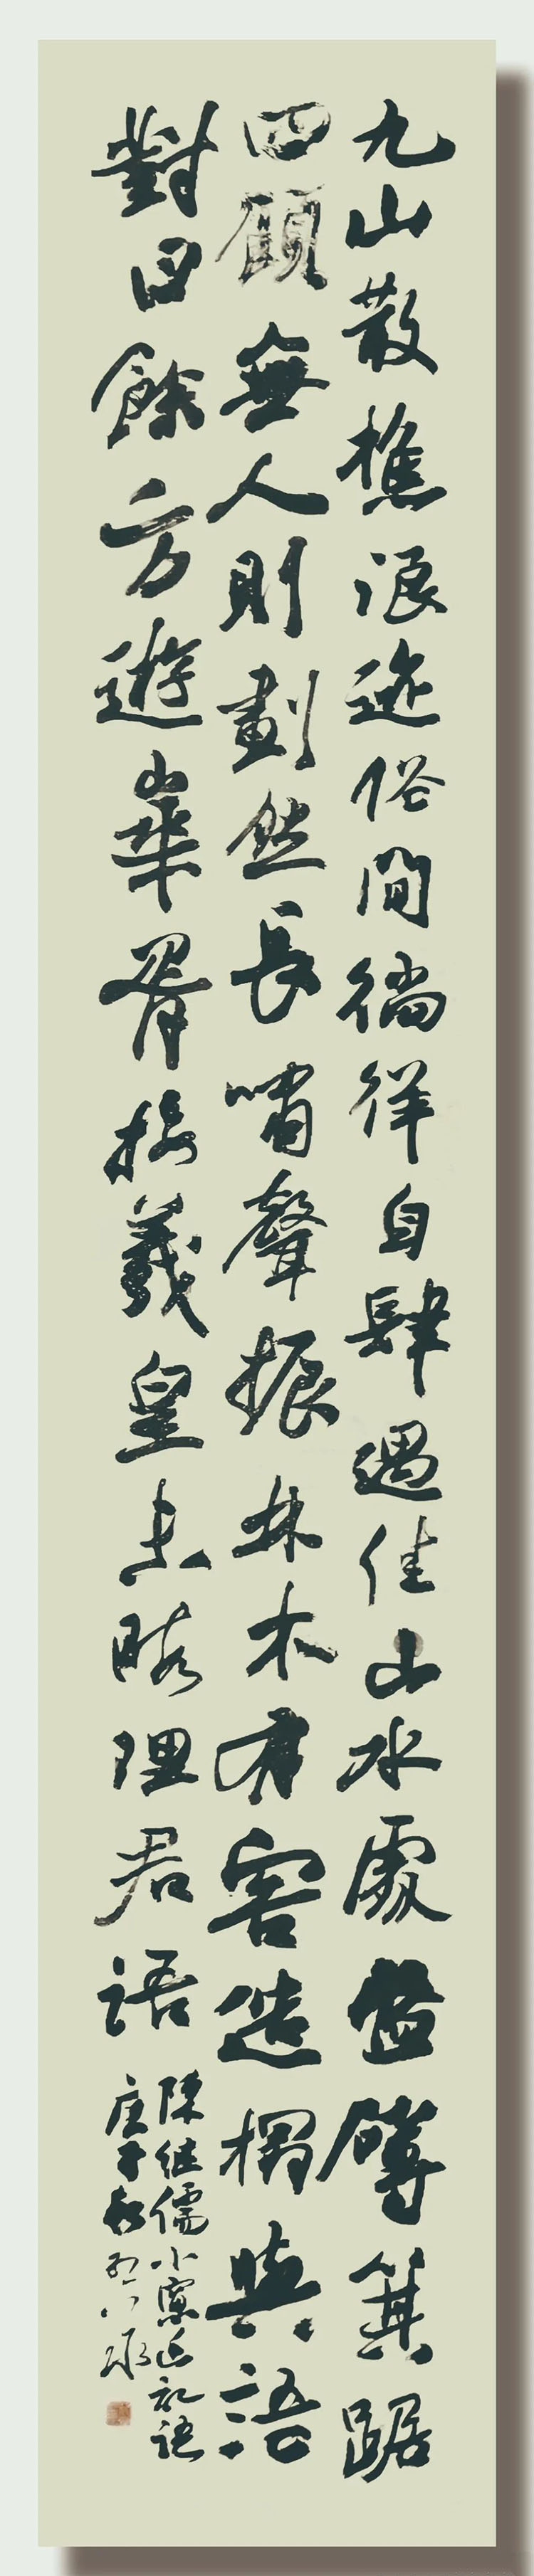 九山散樵浪迹俗間徜徉自肆遇佳山水處盤礴箕踞
四顧無人則劃然長嘯聲振林木有客造榻與語
對曰餘方遊華胥接羲皇未暇理君語
陳继儒小窗幽記語
庚子秋